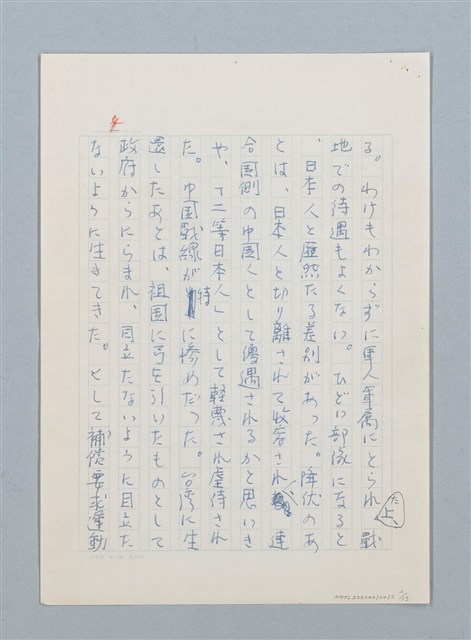 る。わけもわからずに軍人軍属にとられた上、戦
地での待遇もよくない。ひどい部隊になると
、日本人と歴然たる差別があった。降伏のあ
とは、日本人と切り離されて収容され、連
合国側の中国人として優遇されるかと思いき
や、「二等日本人」として軽蔑され虐待され
た。中国戦線が特に惨めだった。台湾に生
還したあとは、祖国に弓を引いたものとして
政府からにらまれ、目立たないように目立た
ないように生きてきた。として補償要求運動